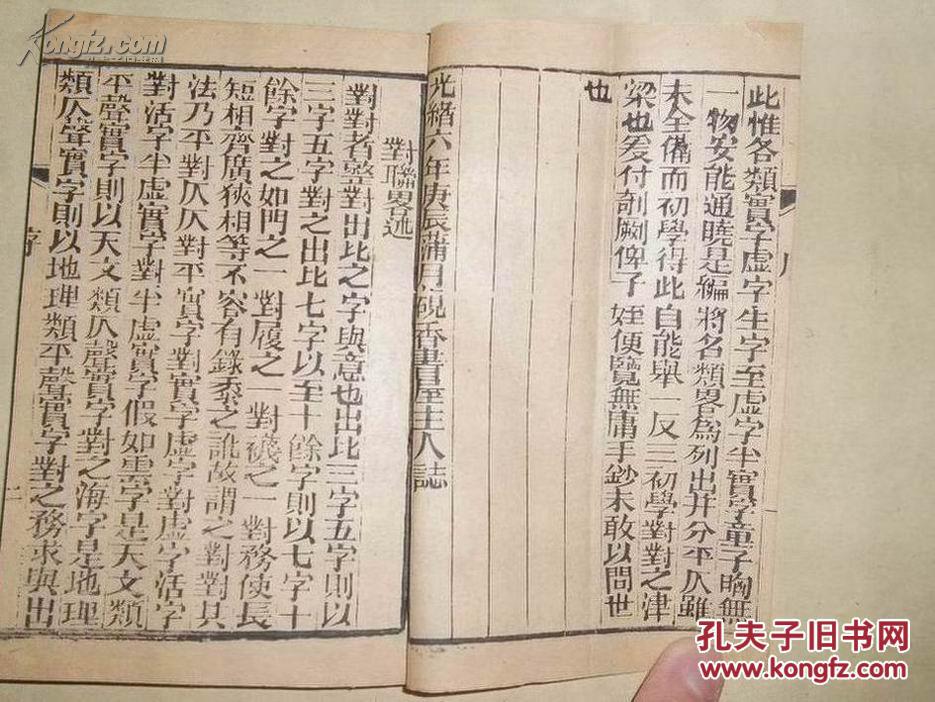 此惟各類實字虛字生字至虛字半實字童子胸無
一物安能通曉是編將名類畧為列出并分平仄雖
未全備而初學得此自能舉一反三初學對對之津
梁也爰付剞劂俾子姪便覽無庸手鈔未敢以問世
也
光緒六年庚辰蒲月硯香書屋主人誌
對聯畧述
對對者整對出比之字與意也出比三字五字則以
三字五字對之出比七字以至十餘字則以七字十
餘字對之如門之一對履之一對襪之一對務使長
短相齊廣狹相等不容有錄黍之訛故謂之對對其
法乃平對仄仄對平實字對實字虛字對虛字活字
對活字半虛實字對半虛實字假如雲字是天文類
平聲實字則以天文類仄聲實字對之海字是地理
類仄聲實字則以地理類平聲實字對之務求與出
序
二
Kongfz.com
孔夫子旧书网
www.kongfz.com